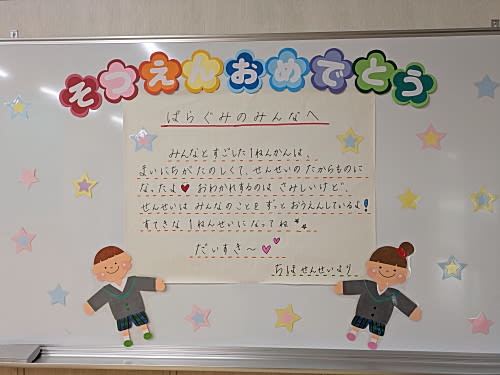 そつえんおめでとう
ばらぐみのみんなへ
みんなとすごした1ねんかんは、
まいにちがたのしくて、せんせいのたからものに
なったよ♥ おわかれするのは さみしいけど、
せんせいは みんなのことを ずっと おうえんしているよ!
すてきな 1ねんせいに なってね
だいすき〜♡♡
ちほ せんせいより